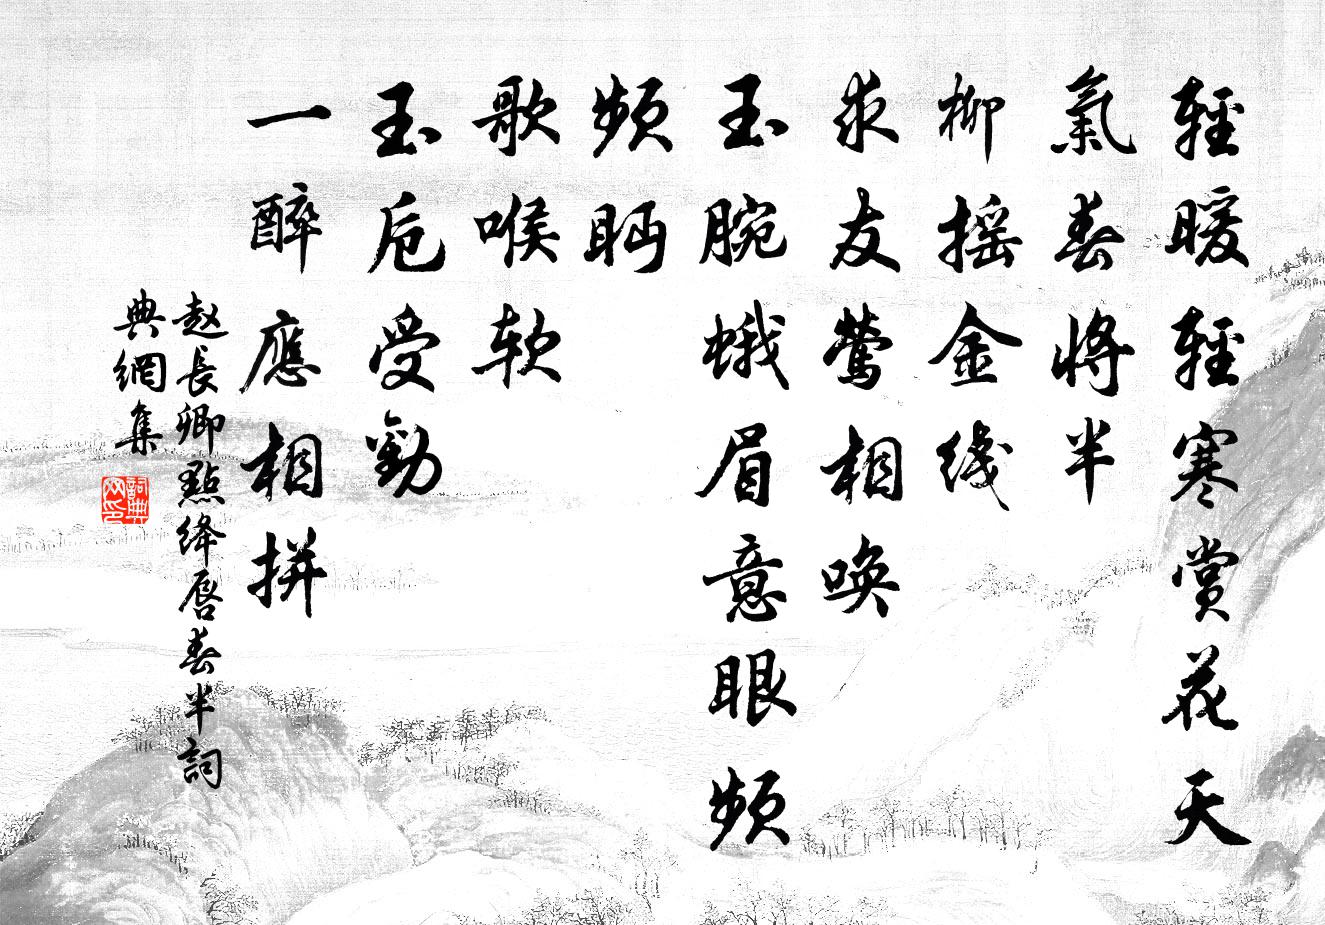 輕暖輕寒賞花天
氣春將半
柳摇金綫
求友鶯相唤
玉腕蛾眉意眼頻
頻眄
歌喉软
玉卮受勸
一醉應相拼
赵長卿點絳唇春半詞
典網集
詞典
网印